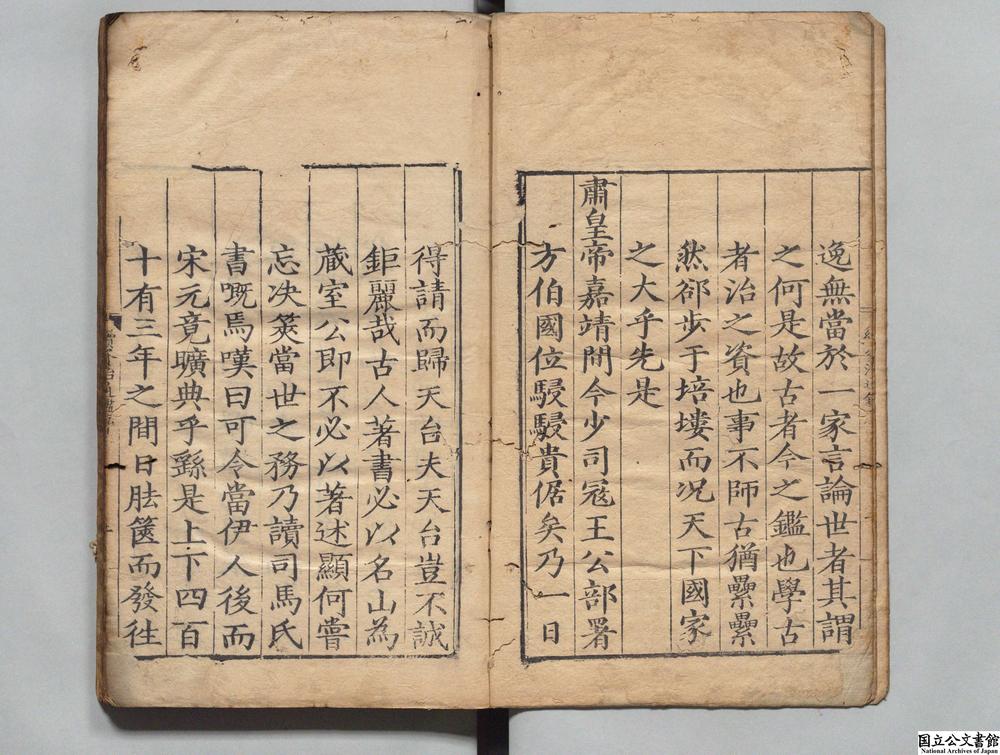 逸無當於一家言論世者其謂
之何是故古者今之鑑也學古
者治之資也事不師古猶纍纍
然郤步于培塿而况天下國家
之大乎先是
肅皇帝嘉靖間今少司冦王公部署
方伯國位駸駸貴倨矣乃一日
得請而歸天台夫天台豈不誠
鉅麗哉古人著書必以名山為
蔵室公即不必以著述顯何嘗
忘决筴當世之務乃讀司馬氏
書嘅焉嘆曰可令當伊人後而
宋元竟曠典乎繇是上下四百
十有三年之間日胠篋而發徃
国立公文書館
National Archives of Japan